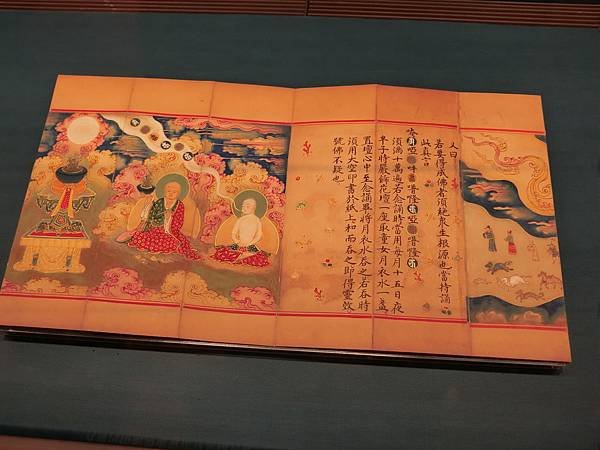 又曰
若要得成佛者須絶衆生根源也當持誦
此真言
啞 吽 啞
須滿十萬遍若念誦時當用每月十五日夜
早子時嚴飾花壇一座取童女月衣水一盞
置壇心中至念誦畢將月衣水吞之若吞時
須用大空印書於紙上和而吞之即得靈效
號佛不疑也